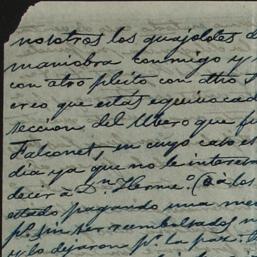 nosotros los guajoldes d
maniobra conmigo y
con otro pleito con otro
creo que estás equivocad
seccion del Ubero que fu
Falconet, en cuyo caso es
dia ya que no le interesa
decir á Dn. Herme º (á los
estado pagando una me
pº sin ser reembolsados n
y lo dejaron pr. la paz.